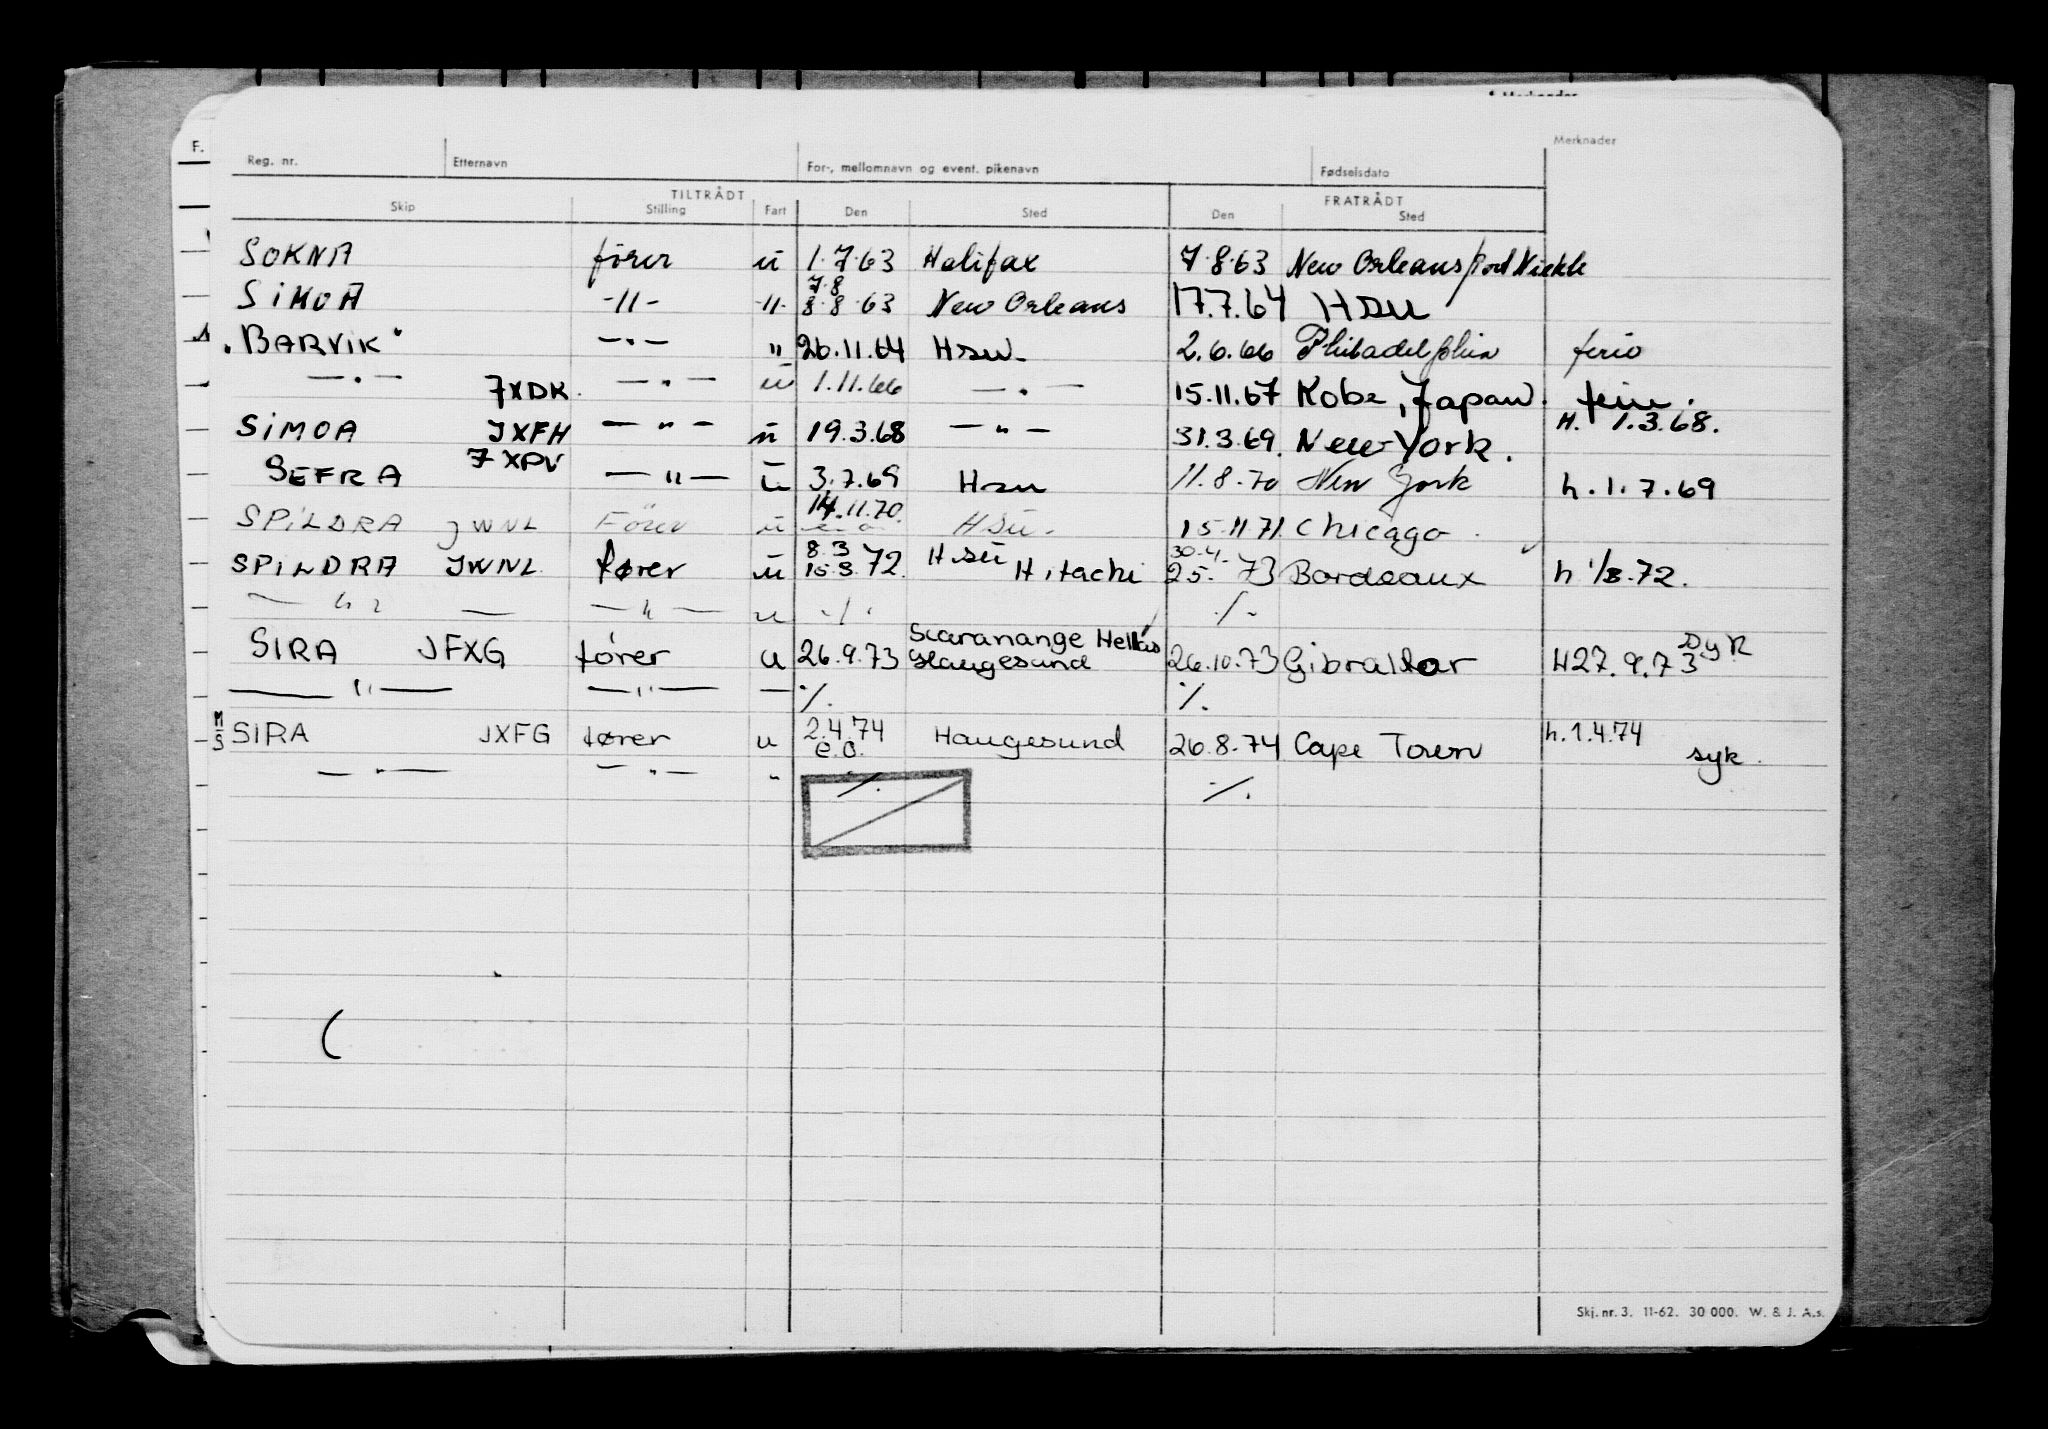 Merknader
F. Reg. nr. Etternavn For-, mellomnavn og event. pikenavn Fødselsdato
TILTRÅDT FRATRÅDT
Skip Stilling Fart Den Sted Den Sted
SOKNA fører u 1.7.63 Halifax 7.8.63 New Orleans/Port
7.8
SIMOA -"- -"- 8.8.63 New Orleans 17.7.64 Hsu
"BARVIK" -"- " 26.11.64 Hsu- 2.6.66 Philadelphia ferie
-"- 7XDK. -"- u 1.11.66 -"- 15.11.67 Kobe, Japan. ferie.
SIMOA JXFH -"- u 19.3.68 -"- 31.3.69. New York. H. 1.3.68.
SEFRA 7XPV -"- u 3.7.69 Hsu 11.8.70 New York h.1.7.69
14.11.70
SPILDRA JWNL Fører u Hsu. 15.11.71 Chicago
8.3 30.4.
SPILDRA JWNL fører u 15.3.72. Hsu Hitachi 25. 73 Bordeaux h 1/3.72.
-"- -"- u ./. ./.
Scaramange Hellas
SIRA JFXG fører u 26.9.73 Haugesund 26.10.73 Gibraltar H27.9.73 syk
-"- -"- - ./. ./.
M/S SIRA JXFG fører u 2.4.74 Haugesund 26.8.74 Cape Town h.1.4.74
e.o. syk.
-"- -"- " ./. ./.
(
Skj. nr. 3. 11-62. 30 000. W. & J. A.s.